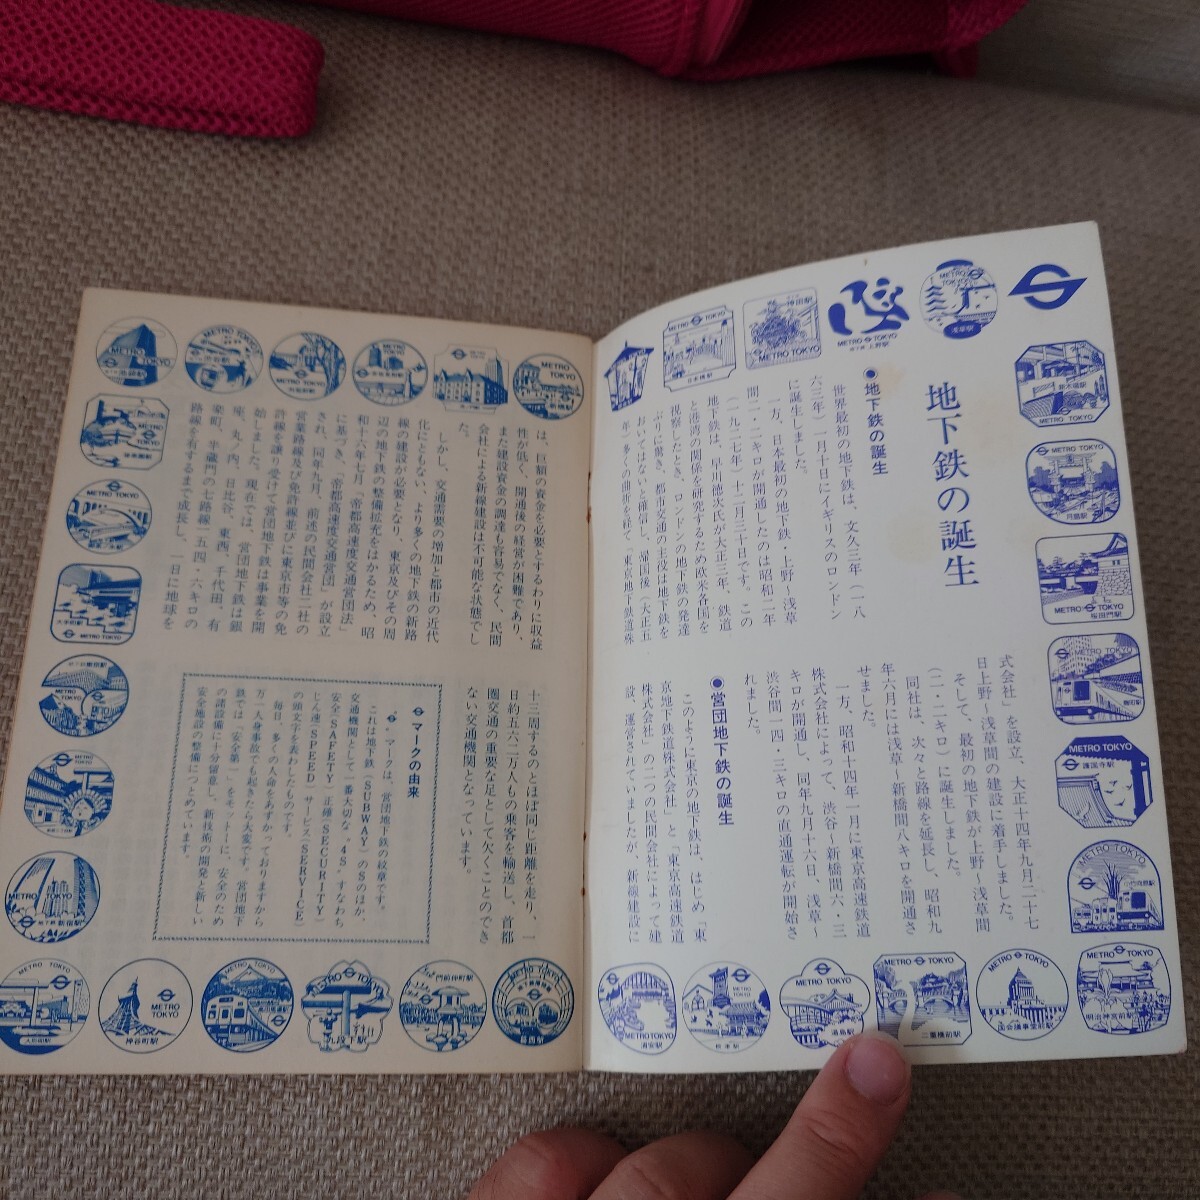 地下鉄の誕生
●地下鉄の誕生
世界最初の地下鉄は、文久三年(一八
六三年)一月十日にイギリスのロンドン
に誕生しました。
一方、日本最初の地下鉄・上野〜浅草
間二・二キロが開通したのは昭和二年
(一九二七年)十二月三十日です。この
地下鉄は、早川徳次氏が大正三年、鉄道
と港湾の関係を研究するため欧米各国を
視察したとき、ロンドンの地下鉄の発達
ぶりに驚き、都市交通の主役は地下鉄を
おいてはないと確信し、帰国後(大正五
年)多くの曲折を経て「東京地下鉄道株
式会社」を設立、大正十四年九月二十七
日上野〜浅草間の建設に着手しました。
そして、最初の地下鉄が上野〜浅草間
(二・二キロ)に誕生しました。
同社は、次々と路線を延長し、昭和九
年六月には浅草〜新橋間八キロを開通さ
せました。
一方、昭和十四年一月に東京高速鉄道
株式会社によって、渋谷〜新橋間六・三
キロが開通し、同年九月十六日、浅草〜
渋谷間一四・三キロの直通運転が開始さ
れました。
●営団地下鉄の誕生
このように東京の地下鉄は、はじめ「東
京地下鉄道株式会社」と「東京高速鉄道
株式会社」の二つの民間会社によって建
設、運営されていましたが、新線建設に
は、巨額の資金を必要とするわりに収益
性が低く、開通後の経営が困難であり、
また建設資金の調達も容易でなく、民間
会社による新線建設は不可能な状態でし
た。
しかし、交通需要の増加と都市の近代
化にともない、より多くの地下鉄の新路
線の建設が必要となり、東京及びその周
辺の地下鉄の整備拡充をはかるため、昭
和十六年七月「帝都高速度交通営団法」
に基づき、「帝都高速度交通営団」が設立
され、同年九月、前述の民間会社二社の
営業路線及び免許線並びに東京市等の免
許線を譲り受けて営団地下鉄は事業を開
始しました。現在では、営団地下鉄は銀
座、丸ノ内、日比谷、東西、千代田、有
楽町、半蔵門の七路線一五四・六キロの
路線を有するまで成長し、一日に地球を
十三周するのとほぼ同じ距離を走り、一
日約五六二万人もの乗客を輸送し、首都
圏交通の重要な足として欠くことのでき
ない交通機関となっています。
マークの由来
マークは、営団地下鉄の紋章です。
これは地下鉄(SUBWAY)のSのほか、
交通機関として一番大切な"4S"すなわち
安全(SAFETY)正確(SECURITY)
じん速(SPEED)サービス(SERVICE)
の頭文字を表わしたものです。
毎日、多くの人命をあずかっておりますから
万一人身事故でも起きたら大変です。営団地下
鉄では「安全第一」をモットーに、安全のため
の諸設備に十分留意し、新技術の開発と新しい
安全施設の整備につとめています。
METRO TOKYO
浅草駅
METRO TOKYO
上野駅
神田駅
METRO TOKYO
METRO TOKYO
日本橋駅
新木場駅
METRO TOKYO
METRO TOKYO
月島駅
METRO TOKYO
桜田門駅
METRO TOKYO
麹町駅
METRO TOKYO
護国寺駅
METRO TOKYO
METRO TOKYO
明治神宮前駅
METRO TOKYO
国会議事堂前駅
METRO TOKYO
二重橋前駅
METRO TOKYO
湯島駅
METRO TOKYO
根津駅
METRO TOKYO
浦安駅
METRO TOKYO
新橋駅
METRO TOKYO
METRO TOKYO
METRO TOKYO
METRO TOKYO
渋谷駅
METRO TOKYO
池袋駅
METRO TOKYO
METRO TOKYO
METRO TOKYO
METRO TOKYO
METRO TOKYO
METRO TOKYO
新宿駅
METRO TOKYO
人形町駅
METRO TOKYO
神谷町駅
METRO TOKYO
METRO TOKYO
九段下駅
門前仲町駅
METRO TOKYO
METRO TOKYO
葛西駅